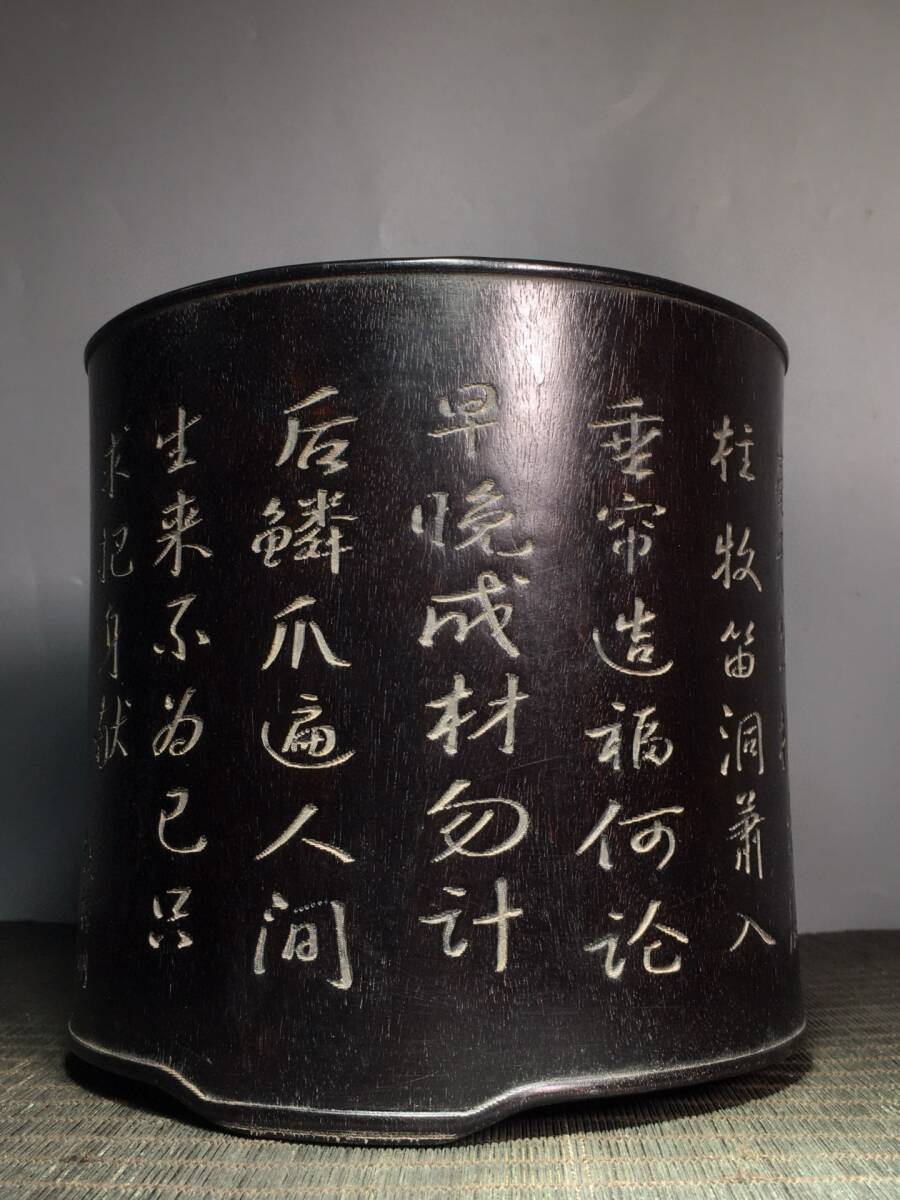 柱牧笛洞萧入
垂帘造福何论
早晚成材勿计
后鳞爪遍人间
生来不为己只
求把身献